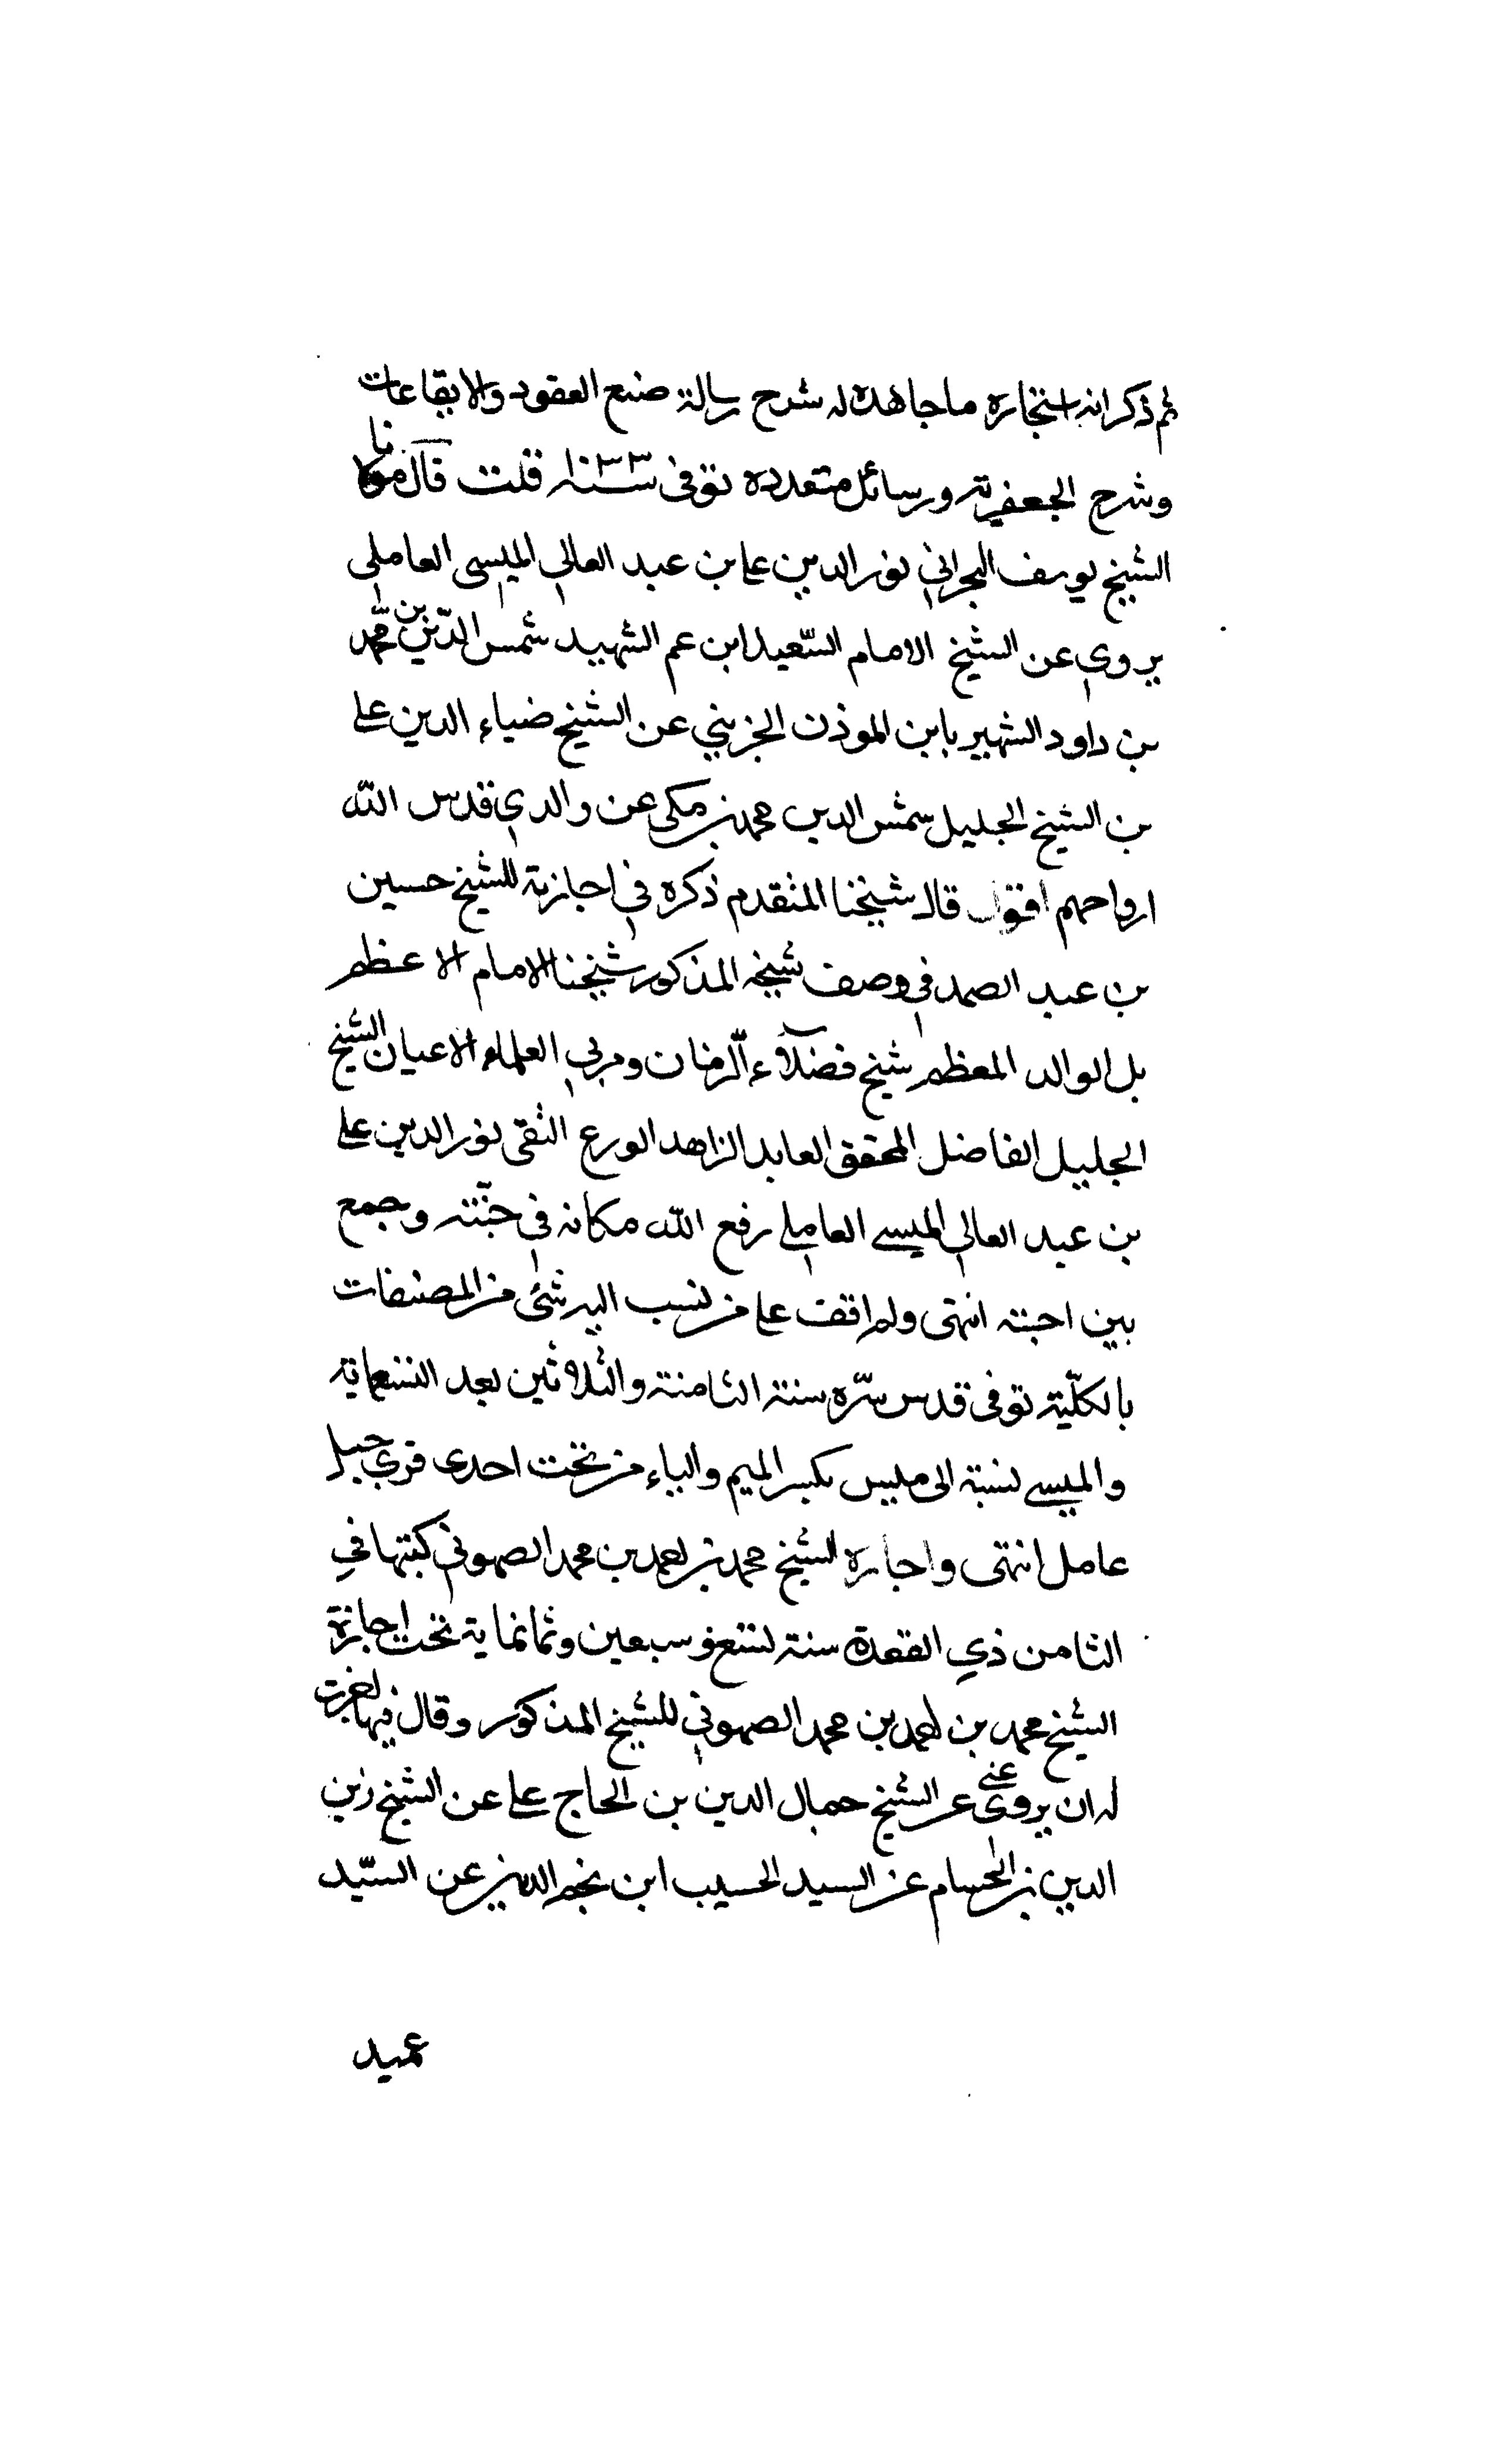 ثم ذكر انه استجازه فاجازه له شرح رسالة صيغ العقود والايقاعات
وشرح الجعفرية ورسائل متعدده توفى سنة ٩٣٣ قلت قال مولانا
الشيخ يوسف البحراني نور الدين على بن عبد العالي الميسى العاملي
يروى عن الشيخ الامام السّعيد ابن عم الشهيد شمس الدّين بن محمّد
بن داود الشهير بابن الموذن الجزيني عن الشيخ ضياء الدين على
بن الشيخ الجليل شمس الدين محمد بن مكى عن والدي قدس الله
ارواحهم اقول قال شيخنا المتقدم ذكره في اجازته للشيخ حسين
بن عبد الصمد في وصف شيخه المذكور شيخنا الامام الاعظم
بل الوالد المعظم شيخ فضلآء الزمان ومربي العلماء الاعيان الشيخ
الجليل الفاضل المحقق العابد الزاهد الورع التقى نور الدين على
بن عبد العالي الميسى العاملي رفع الله مكانه في جنّته وجمع
بين احبته انتهى ولم اقف على من نسب اليه شئ من المصنفات
بالكلّية توفى قدس سّره سنة الثامنة والثلاثين بعد التسعماية
والميسى نسبة الى ميس بكسر الميم والياء من تحت احدى قرى جبل
عامل انتهى واجازه الشيخ محمد بن احمد بن محمد الصهوني كتبها في
الثامن ذي القعدة سنة تسع وسبعين وثمانماية تحت اجازة
الشيخ محمد بن احمد بن محمد الصهوني للشيخ المذكور وقال فيها اجزت
له ان يروى عنى عن الشيخ جمال الدين بن الحاج على عن الشيخ زين
الدين بن الحسام عن السيد الحسيب ابن نجم الدين عن السّيد
عميد